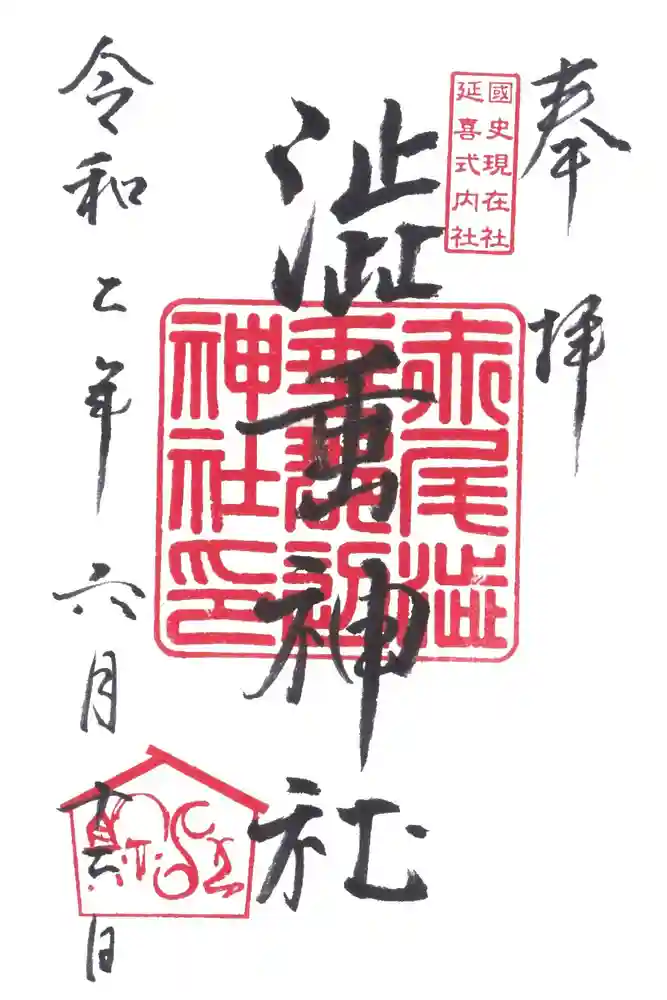 奉拝
國史現在社
延喜式内社
澁垂神社
赤尾澁
神社印
令和二年六月十六日